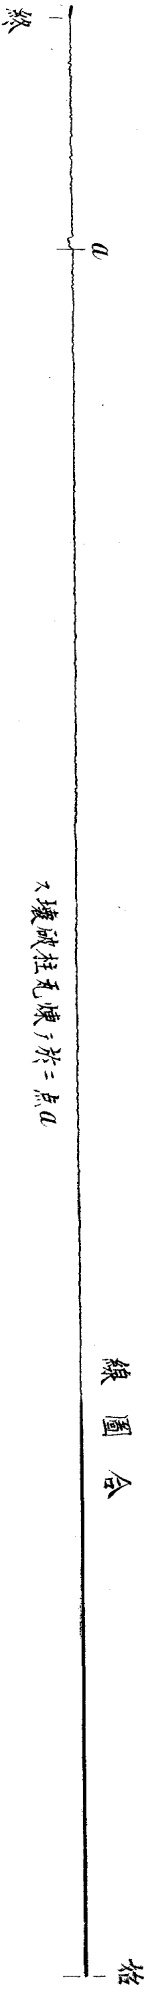 始
合圖線
a点ニ於テ煉瓦柱破壞ス
a
終